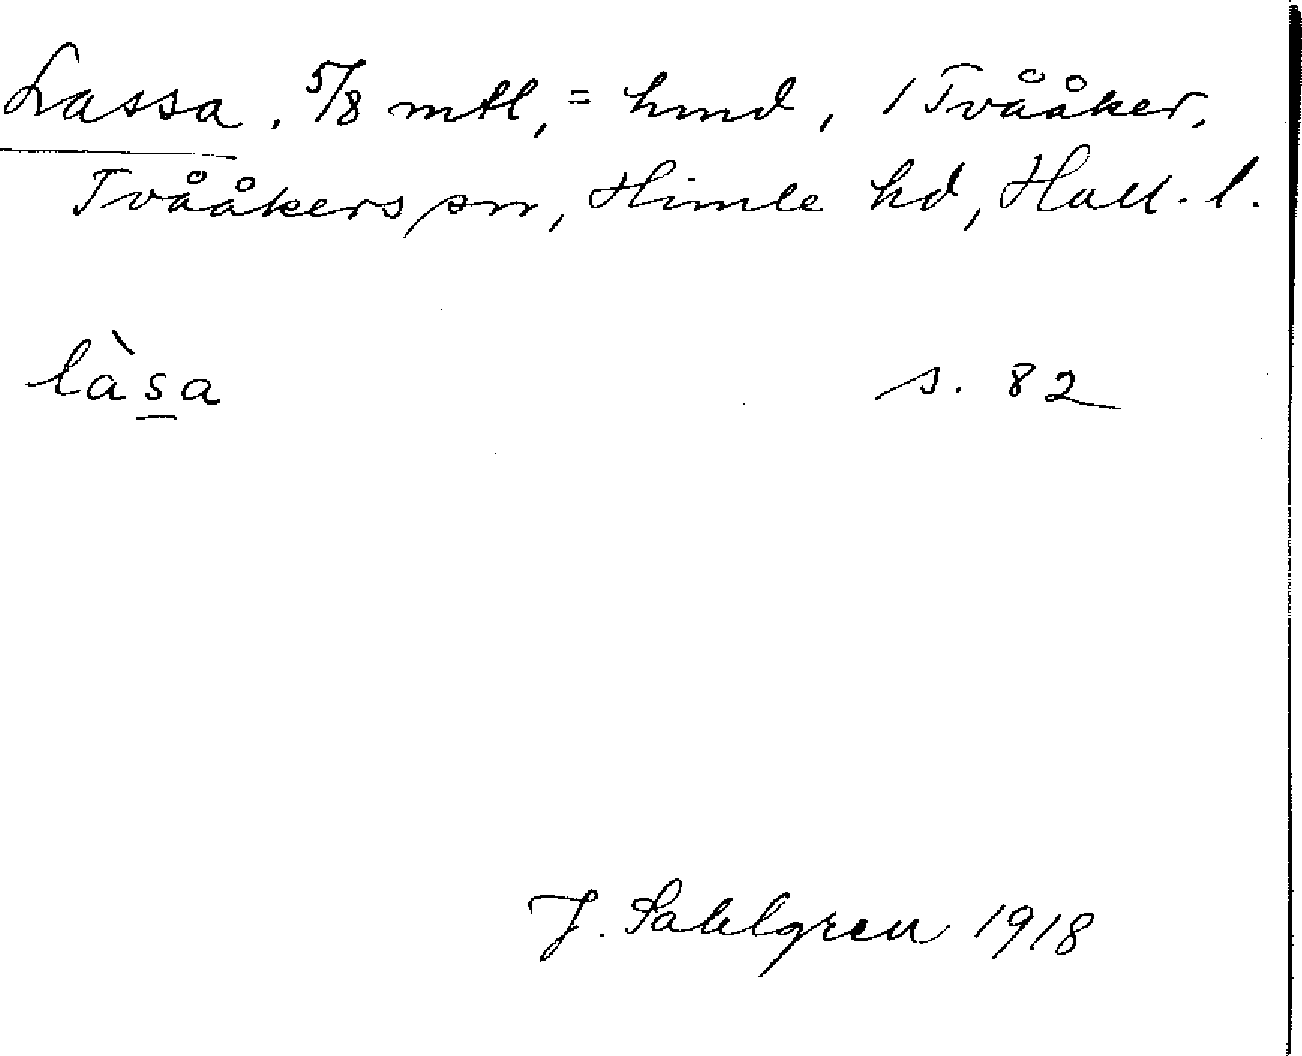 Lassa, 5/8 mtl, = hmd, 1 Tvååker,
Tvååkers sn, Himle hd, Hall. l.
làsa s. 82
J. Sahlgren 1918